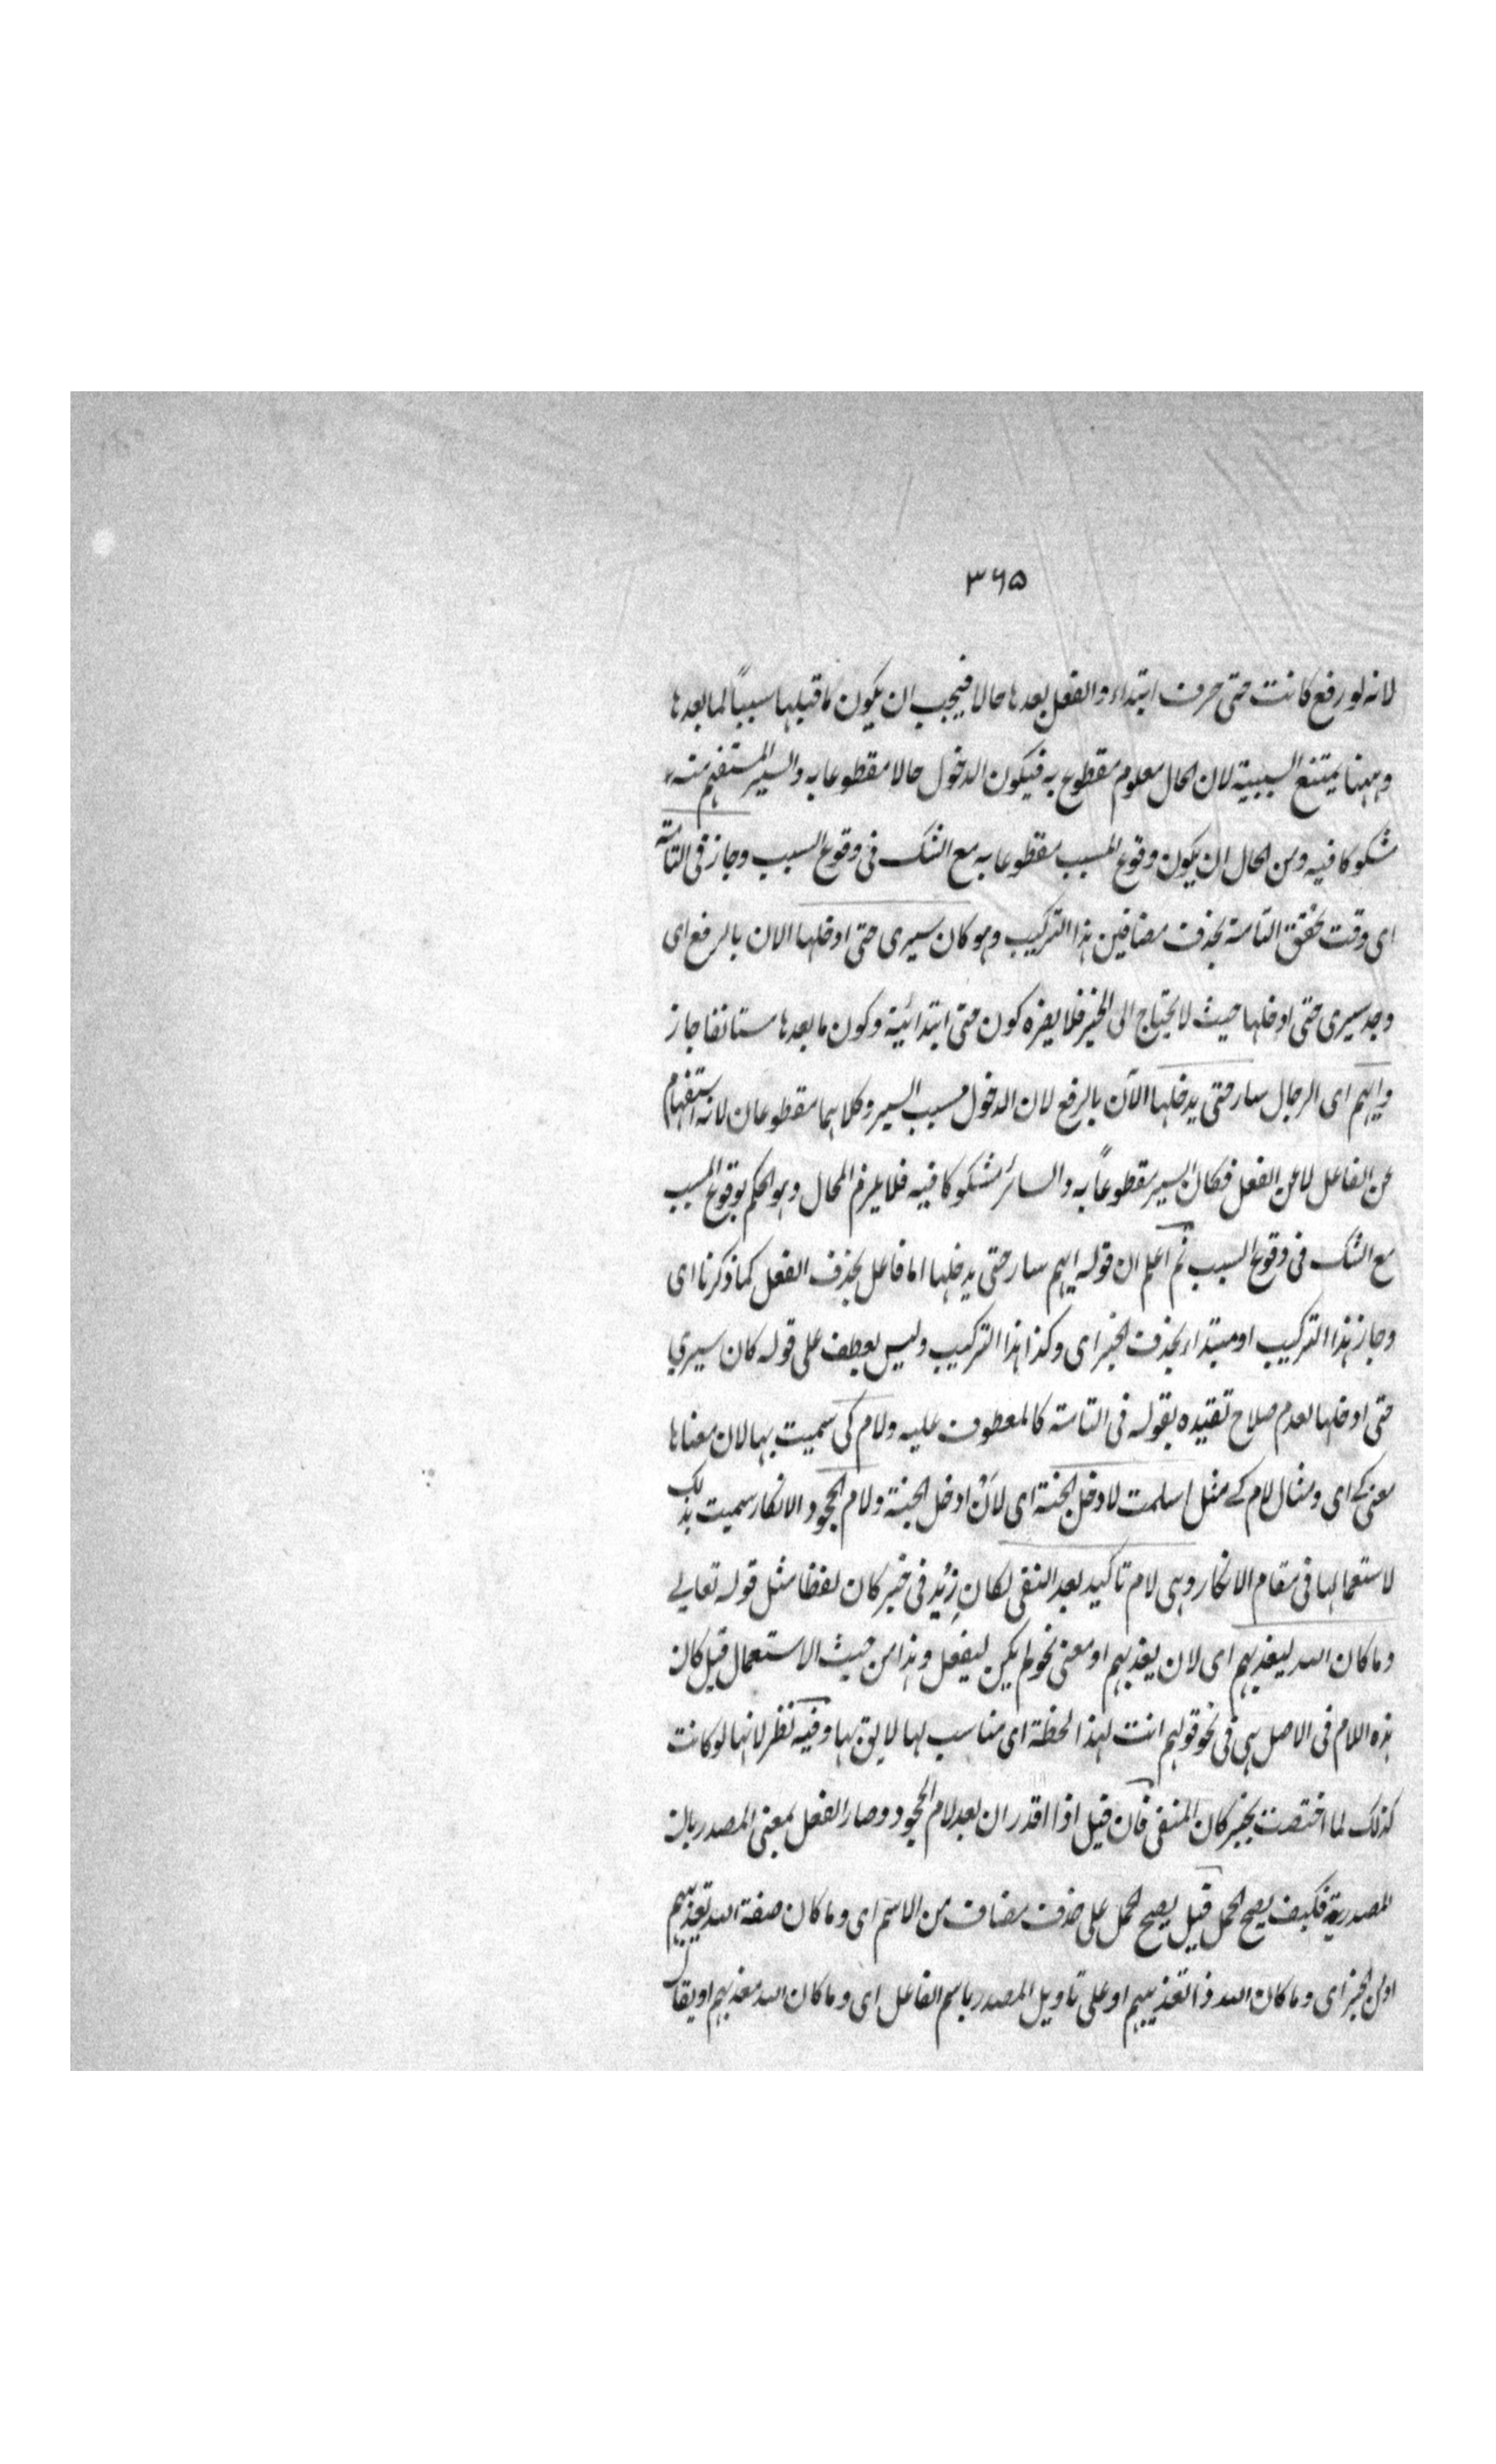 ٣٦٥
لانه لو رفع كانت حتى حرف ابتداء والفعل بعدها حالا فيجب ان يكون ما قبلها سببًا لما بعدها
وههنا يمتنع السببية لان الحال معلوم مقطوع به فيكون الدخول حالا مقطوعا به والسير المستفهم منه
مشكوكا فيه ومن المحال ان يكون وقوع المسبب مقطوعا به مع الشك فى وقوع السبب وجاز فى التامة
اى وقت تحقق التامة بحذف مضافين هذا التركيب وهو كان سيرى حتى ادخلها الان بالرفع اى
وجد سيرى حتى ادخلها حيث لا يحتاج الى الخبر فلا يضره كون حتى ابتدائية وكون ما بعدها مستانفا جاز
وايهم اى الرجال سار حتى يدخلها الآن بالرفع لان الدخول مسبب السير وكلاهما مقطوعان لانه استفهام
عن الفاعل لا عن الفعل فكان السير مقطوعاً به والسائر مشكوكا فيه فلا يلزم المحال وهو الحكم بوقوع المسبب
مع الشك فى وقوع السبب ثم اعلم ان قوله ايهم سار حتى يدخلها اما فاعل بحذف الفعل كما ذكرنا اى
وجاز هذا التركيب او مبتداء بحذف الخبر اى وكذا هذا التركيب وليس بعطف على قوله كان سيرى
حتى ادخلها لعدم صلاح تقيده بقوله فى التامة كالمعطوف عليه ولام كى سميت بها لان معناها
معنى كے اى ومثال لام كے مثل اسلمت لادخل الجنة اى لأن ادخل الجنة ولام الجحود الانكار سميت بذلك
لاستعمالها فى مقام الانكار وهى لام تاكيد بعد النفى لكان زيد فى خبر كان لفظا مثل قوله تعالے
وما كان الله ليعذبهم اى لان يعذبهم او معنى نحو لم يكن ليفعل وهذا من حيث الاستعمال قيل كان
هذه اللام فى الاصل هى فى نحو قولهم انت لهذا الخطة اى مناسب لها لايق بها وفيه نظر لانها لو كانت
كذلك لما اختصت بخبر كان المنفى فان قيل اذا اقدر ان بعد لام الجحود وصار الفعل بمعنى المصدر بان
المصدرية فكيف يصح الحمل قيل يصح الحمل على حذف مضاف من الاسم اى وما كان صفة الله تعذيبهم
او من الخبر اى وما كان الله ذا تعذيبهم او على تاويل المصدر باسم الفاعل اى وما كان الله معذبهم او يقال